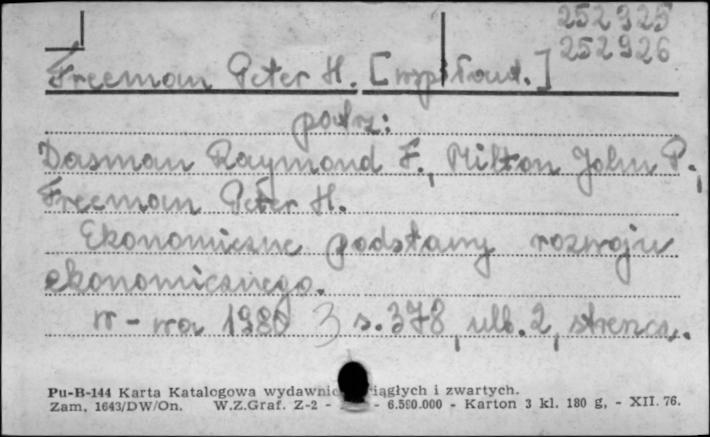 252925
252926
Freeman Peter H. [współaut.]
patrz:
Dasman Raymond F., Milton John P.,
Freeman Peter H.
Ekonomiczne podstawy rozwoju
ekonomicznego.
W-wa 1980 s. 378, ulb. 2, streszcz.
Pu-B-144 Karta Katalogowa wydawnic iągłych i zwartych.
Zam. 1643/DW/On. W.Z.Graf. Z-2 - - 6.590.000 - Karton 3 kl. 180 g, - XII. 76.